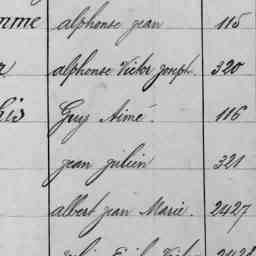 mme alphonse jean 115
alphonse Victor Joseph. 320
his Guy Aimé. 116
jean julien 321
albert jean Marie. 2427